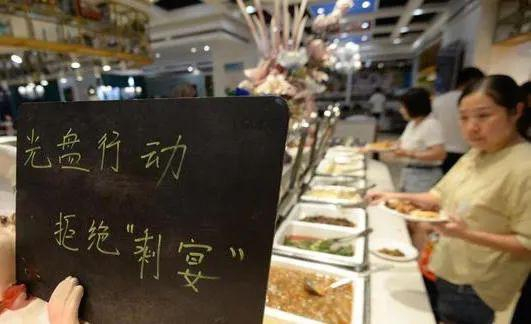 光盘行动
拒绝"剩宴"